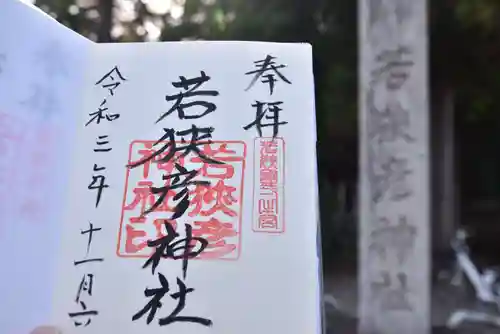 奉拝
若狭彦神社
令和三年十一月六
若狭彦神社印
若狭国一之宮
若狭彦神社